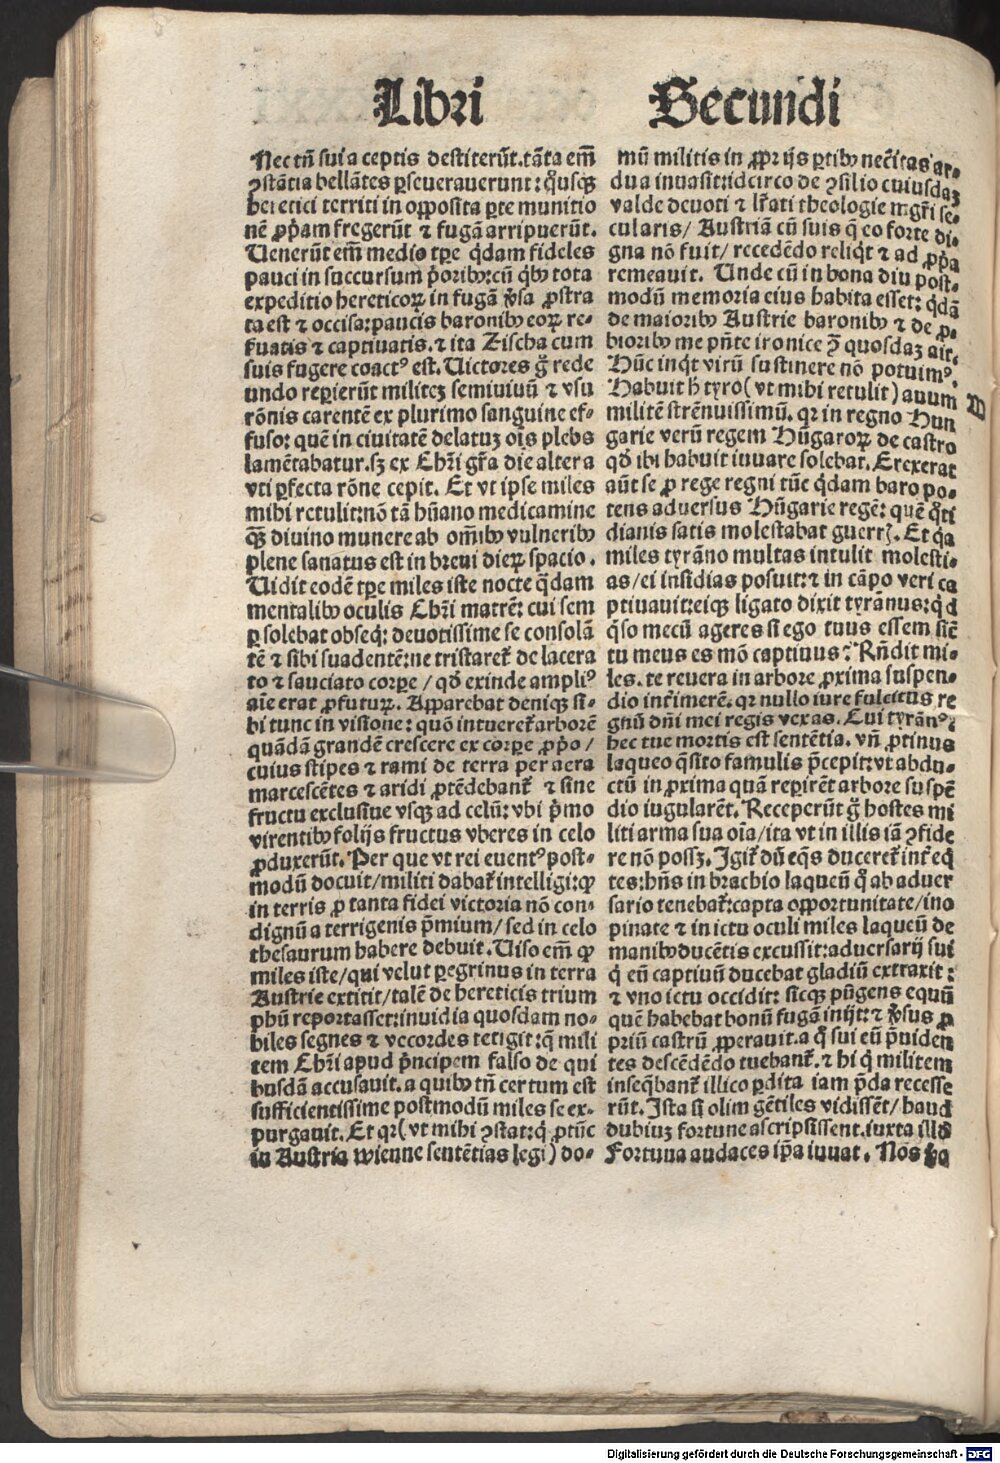 Libri Secundi
Nec tñ sui a ceptis destiterũt. tãta em̃
ꝯstãtia bellãtes ꝑseuerauerunt: q̊usqꝫ
heretici territi in opposita ꝑte munitio
nẽ ꝓp̃am fregerũt ⁊ fugã arripuerũt.
Uenerũt em̃ medio tꝑe q̃dam fideles
pauci in succursum p̃oribꝰ: cũ qͥbꝰ tota
expeditio hereticoꝝ in fugã ꝟsa ꝓstra
ta est ⁊ occisa: paucis baronibꝰ eoꝝ re-
seruatis ⁊ captiuatis. ⁊ ita Zischa cum
suis fugere coactꝰ est. Uictores g̊ rede
undo reꝑierũt militeꝫ semiuiuũ ⁊ vsu
rõnis carentẽ ex plurimo sanguine ef-
fuso: quẽ in ciuitatẽ delatuꝫ oĩs plebs
lamẽtabatur. sꝫ ex Chr̃i gr̃a die altera
vti ꝑfecta rõne cepit. Et vt ipse miles
mihi retulit: nõ tã hũano medicamine
qꝫ̃ diuino munere ab om̃ibꝰ vulneribꝰ
plene sanatus est in breui dieꝝ spacio.
Uidit eodẽ tꝑe miles iste nocte q̃dam
mentalibꝰ oculis Chr̃i matrẽ: cui sem
ꝑ solebat obseq̃: deuotissime se consolã
tẽ ⁊ sibi suadentẽ: ne tristaret̃ de lacera
to ⁊ sauciato corꝑe / qd̃ exinde ampliꝰ
aĩe erat ꝓfuturꝝ. Apparebat deniqꝫ si-
bi tunc in visione: quõ intueret̃ arborẽ
quãdã grandẽ crescere ex corꝑe ꝓp̃o /
cuius stipes ⁊ rami de terra per aera
marcescẽtes ⁊ aridi ꝓtẽdebant̃ ⁊ sine
fructu exclusiue vsqꝫ ad celũ: vbi p̃mo
virentibꝰ folijs fructus vberes in celo
ꝓduxerũt. Per que vt rei euentꝰ post-
modũ docuit / militi dabat̃ intelligi: ꝙ
in terris ꝓ tanta fidei victoria nõ con-
dignũ a terrigenis p̃mium / sed in celo
thesaurum habere debuit. Uiso em̃ ꝙ
miles iste / qui velut ꝑegrinus in terra
Austrie extitit / talẽ de hereticis trium
phũ reportasset: inuidia quosdam no-
biles segnes ⁊ vecordes tetigit: q̃ mili
tem Chr̃i apud p̃ncipem falso de qui
busdã accusauit. a quibꝰ tñ certum est
sufficientissime postmodũ miles se ex-
purgauit. Et qꝛ (vt mihi ꝯstat: q̃ ꝓtũc
in Austria wienne sentẽtias legi) do-
mũ militis in ꝓprijs ꝑtibꝰ nec̃itas ar-
dua inuasit: idcirco de ꝯsilio cuiusdaꝫ
valde deuoti ⁊ lr̃ati theologie mgr̃i se-
cularis / Austriã cũ suis q̃ eo forte di-
gna nõ fuit / recedẽdo reliqͥt ⁊ ad ꝓp̃a
remeauit. Unde cũ in bona diu post-
modũ memoria eius habita esset: qͥdã
de maioribꝰ Austrie baronibꝰ ⁊ de ꝓ-
bioribꝰ me pñte ironice ꝯ̃ quosdaꝫ ait.
Hũc inqͥt virũ sustinere nõ potuimꝰ.
Habuit h̃ tyro (vt mihi retulit) auum
militẽ strẽnuissimũ. qꝛ in regno Hun
garie verũ regem Hũgaroꝝ de castro
qd̃ ibi habuit iuuare solebat. Erexerat
aũt se ꝓ rege regni tũc qͥdam baro po-
tens aduersus Hũgarie regẽ: quẽ q̊ti
dianis satis molestabat guerrꝭ. Et q̃a
miles tyrãno multas intulit molesti-
as / ei insidias posuit: ⁊ in cãpo veri ca
ptiuauit: eiqꝫ ligato dixit tyrãnus: qͥd
q̃so mecũ ageres si ego tuus essem sic̃
tu meus es mõ captiuus? Rñdit mi-
les. te reuera in arbore ꝓxima suspen-
dio int̃imerẽ. qꝛ nullo iure fulcitus re
gnũ dñi mei regis vexas. Cui tyrãnꝰ:
hec tue mortis est sentẽtia. vñ ꝓtinus
laqueo q̃sito famulis p̃cepit: vt abdu-
ctũ in ꝓxima quã reꝑirẽt arbore suspẽ
dio iugularẽt. Receperũt g̊ hostes mi
liti arma sua oĩa / ita vt in illis iã ꝯfide
re nõ possꝫ. Igit̃ dũ eq̃s duceret̃ int̃ eq̃
tes: hñs in brachio laqueũ q̃ ab aduer
sario tenebat̃: capta opportunitate / ino
pinate ⁊ in ictu oculi miles laqueũ de
manibꝰ ducẽtis excussit: aduersarij sui
q̃ eũ captiuũ ducebat gladiũ extraxit:
⁊ vno ictu occidit: sicqꝫ pũgens equũ
quẽ habebat bonũ fugã inijt: ⁊ ꝟsus ꝓ
priũ castrũ ꝓperauit. a q̊ sui eũ p̃uiden
tes descẽdẽdo tuebant̃. ⁊ hi q̃ militem
inseq̃bant̃ illico ꝑdita iam p̃da recesse
rũt. Ista si olim gẽtiles vidissẽt / haud
dubiuꝫ fortune ascripsissent. iuxta illd̃
Fortuna audaces ip̃a iuuat. Nos ꝟo